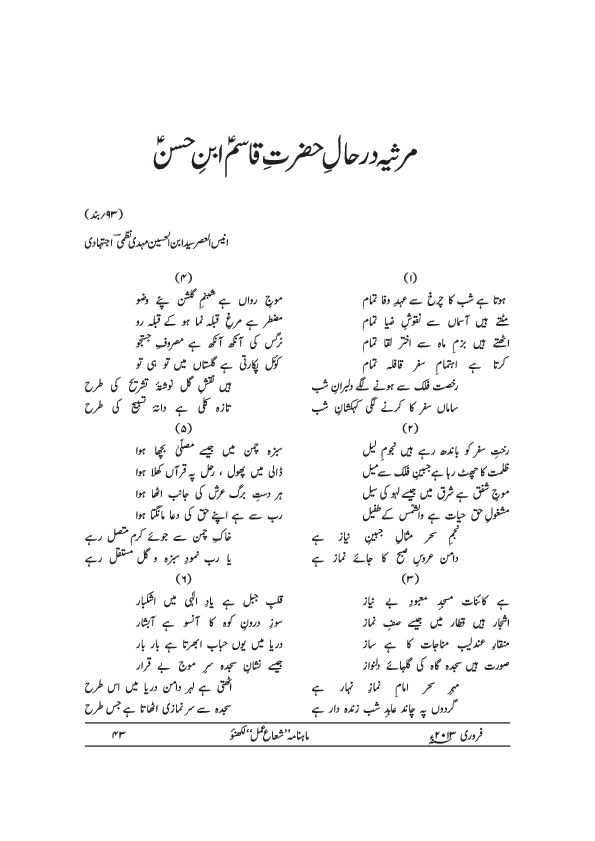 مرثیہ در حالِ حضرتِ قاسمؑ ابنِ حسنؑ
(۹۳؍بند)
انیس العصر سید ابن الحسین مہدی نظمیؔ اجتہادی
(۱)
ہوتا ہے شب کا چرخ سے عہدِ وفا تمام
مٹتے ہیں آسماں سے نقوشِ ضیا تمام
اٹھتے ہیں بزمِ ماہ سے اختر لقا تمام
کرتا ہے اہتمامِ سفر قافلہ تمام
رخصت فلک سے ہونے لگے دلبرانِ شب
ساماں سفر کا کرنے لگی کہکشانِ شب
(۲)
رختِ سفر کو باندھ رہے ہیں نجومِ لیل
ظلمت کا چھٹ رہا ہے جبینِ فلک سے میل
موجِ شفق ہے شرق میں جیسے لہو کی سیل
مشغولِ حق حیات ہے والشمس کے طفیل
نجمِ سحر مثالِ جبینِ نیاز ہے
دامن عروسِ صبح کا جائے نماز ہے
(۳)
ہے کائنات مسجدِ معبودِ بے نیاز
اشجار ہیں قطار میں جیسے صفِ نماز
منقارِ عندلیب مناجات کا ہے ساز
صورت ہیں سجدہ گاہ کی گلہائے دلنواز
مہرِ سحر امامِ نمازِ نہار ہے
گردوں پہ چاند عابدِ شب زندہ دار ہے
(۴)
موجِ رواں ہے شبنمِ گلشن پئے وضو
مضطر ہے مرغِ قبلہ نما ہو کے قبلہ رو
نرگس کی آنکھ آنکھ ہے مصروفِ جستجو
کوئل پکارتی ہے گلستاں میں تو ہی تو
ہیں نقشِ گل نوشتۂ تشریح کی طرح
تازہ کلی ہے دانۂ تسبیح کی طرح
(۵)
سبزہ چمن میں جیسے مصلّیٰ بچھا ہوا
ڈالی میں پھول ، رحل پہ قرآں کھلا ہوا
ہر دستِ برگ عرش کی جانب اٹھا ہوا
رب سے ہے اپنے حق کی دعا مانگتا ہوا
خاکِ چمن سے جوئے کرم متصل رہے
یا رب نمودِ سبزہ و گل مستقل رہے
(۶)
قلبِ جبل ہے یادِ الٰہی میں اشکبار
سوزِ درونِ کوہ کا آنسو ہے آبشار
دریا میں یوں حباب ابھرتا ہے بار بار
جیسے نشانِ سجدہ سرِ موج بے قرار
اٹھتی ہے لہر دامنِ دریا میں اس طرح
سجدہ سے سر نمازی اٹھاتا ہے جس طرح
فروری ۲۰۱۳ء
ماہنامہ ’’شعاع عمل‘‘ لکھنؤ
۴۳